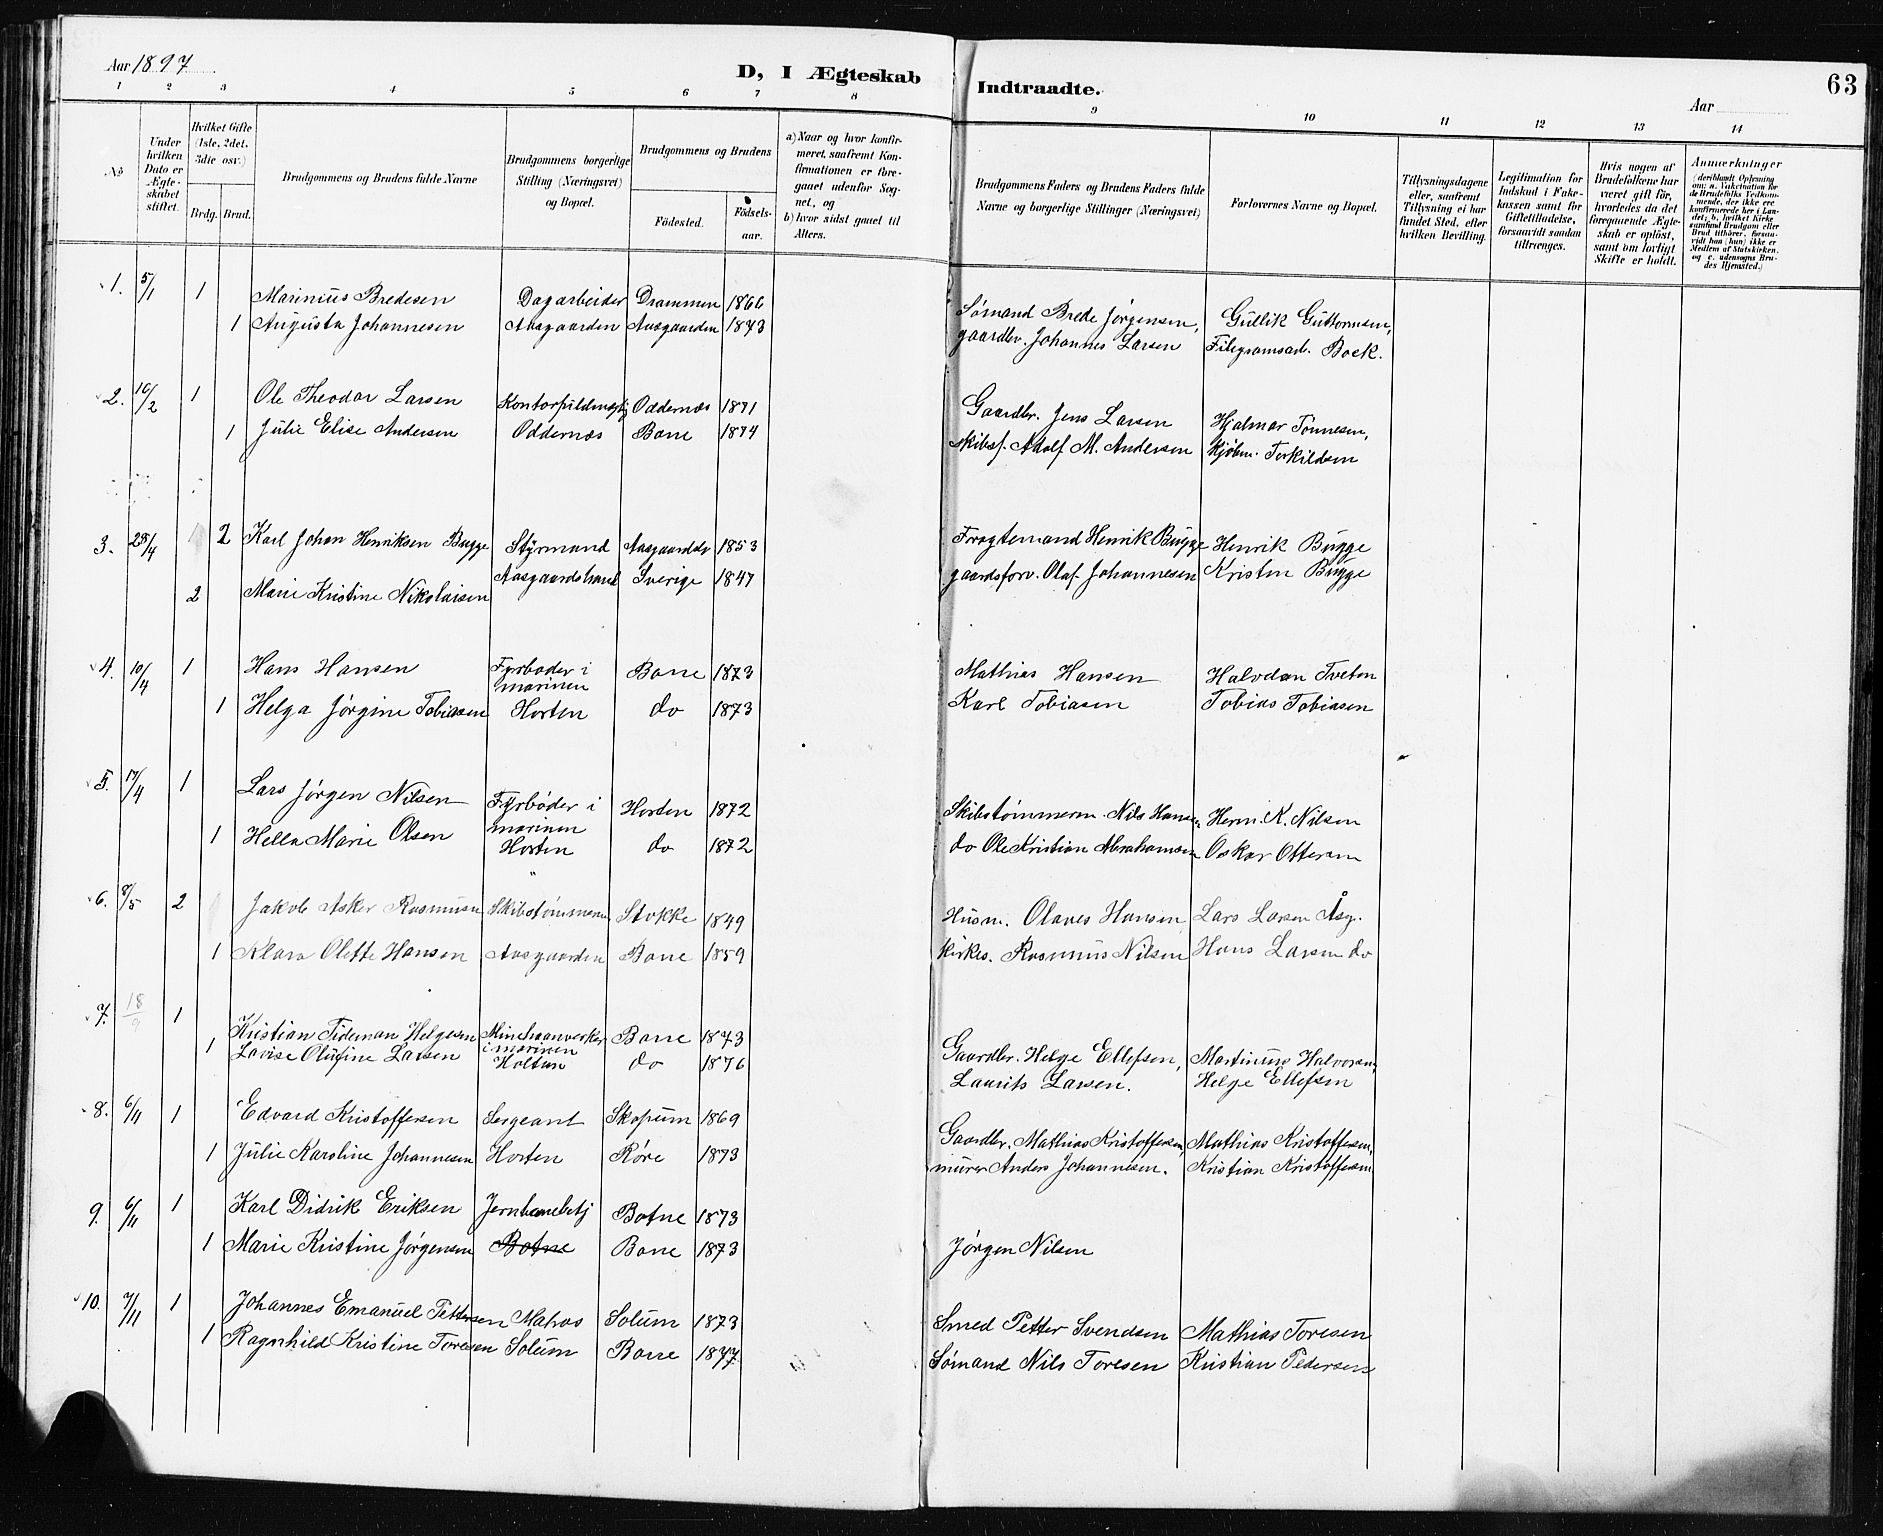 Aar 1897
D, I Ægteskab Indtraadte.
63
Aar
1 2 3 4 5 6 7 8 9 10 11 12 13 14
No
Under hvilken Dato er Ægteskabet stiftet.
Hvilket Gifte (1ste, 2det, 3die osv.)
Brdg. Brud.
Brudgommens og Brudens fulde Navne
Brudgommens borgerlige Stilling (Næringsvei) og Bopæl.
Brudgommens og Brudens
Födested.
Födsels-aar.
a) Naar og hvor konfirmeret, saafremt Konfirmationen er foregaaet udenfor Sognet, og
b) hvor sidst gaaet til Alters.
Brudgommens Faders og Brudens Faders fulde Navne og borgerlige Stillinger (Næringsvei)
Forlovernes Navne og Bopæl.
Tillysningsdagene eller, saafremt Tillysning ei har fundet Sted, efter hvilken Bevilling.
Legitimation for Indskud i Enkekassen samt for Giftetilladelse, forsaavidt saadan tiltrænges.
Hvis nogen af Brudefolkene har været gift før, hvorledes da det foregaaende Ægteskab er opløst, samt om lovligt Skifte er holdt.
Anmærkninger (deriblandt Oplysning om: a. Vakcination for de Brudefolks Vedkommende, der ikke ere konfirmerede her i Landet; b. hvilket Kirkesamfund Brudgom eller Brud tilhører, forsaavidt han (hun) ikke er Medlem af Statskirken, og c. udensogns Brudes Hjemsted.)
1. 5/1 1 Marinius Bredesen Dagarbeider Drammen 1866 Sømand Brede Jørgensen, Gullik Guttormsen,
1 Augusta Johannesen Aasgaarden Aasgaarden 1873 gaardbr. Johannes Larsen Filigramsarb. Boek.
2. 10/2 1 Ole Theodor Larsen Kontorfuldmægtig Oddernæs 1871 Gaardbr. Jens Larsen Hjalmar Tønnesen,
1 Julie Elise Andersen Oddernæs Borre 1874 skibsf. Adolf M. Andersen Kjøbm. Torkildsen
3. 25/4 1 2 Karl Johan Henriksen Bugge Styrmand Aasgaardstr 1853 Fragtemand Henrik Bugge Henrik Bugge
2 Marie Kristine Nikolaisen Aasgaardstrand Sverige 1847 gaardsforv. Olaf Johannesen Kristen Bugge
4. 10/4 1 Hans Hansen Fyrbøder i marinen Borre 1873 Mathias Hansen Halvdan Tveten
1 Helga Jørgine Tobiasen Horten do 1873 Karl Tobiasen Tobias Tobiasen
5. 17/4 1 Lars Jørgen Nilsen Fyrbøder i marinen Horten 1872 Skibstømmerm. Nils Hansen Herm. K. Nilsen
1 Hella Marie Olsen Horten do 1872 do Ole Kristian Abrahamsen Oskar Ottersen
6. 8/5 2 Jakob Asker Rasmusen Skibstømmerm Stokke 1849 Husm. Olaves Hansen Lars Larsen Åsg.
1 Klara Olette Hansen Aasgaarden Borre 1859 kirkes. Rasmus Nilsen Hans Larsen do
7. 18/9 1 Kristian Tideman Helgesen Minehaanverker i marinen Borre 1873 Gaardbr. Helge Ellefsen, Martinius Halvorsen,
1 Lovise Olufine Larsen Holtan do 1876 Laurits Larsen. Helge Ellefsen
8. 6/11 1 Edvard Kristoffersen Sergeant Skopum 1869 Gaardbr. Mathias Kristoffersen, Mathias Kristoffersen,
1 Julie Karoline Johannesen Horten Røre 1873 murer Anders Johannesen. Kristian Kristoffersen
9. 6/11 1 Karl Didrik Eriksen Jernbanebetj Botne 1873
1 Marie Kristine Jørgensen Botne Borre 1873 Jørgen Nilsen
10. 7/11 1 Johannes Emanuel Pettersen Matros Solum 1873 Smed Petter Svendsen Mathias Toresen
1 Ragnhild Kristine Toresen Solum Borre 1877 Sømand Nils Toresen Kristian Pedersen